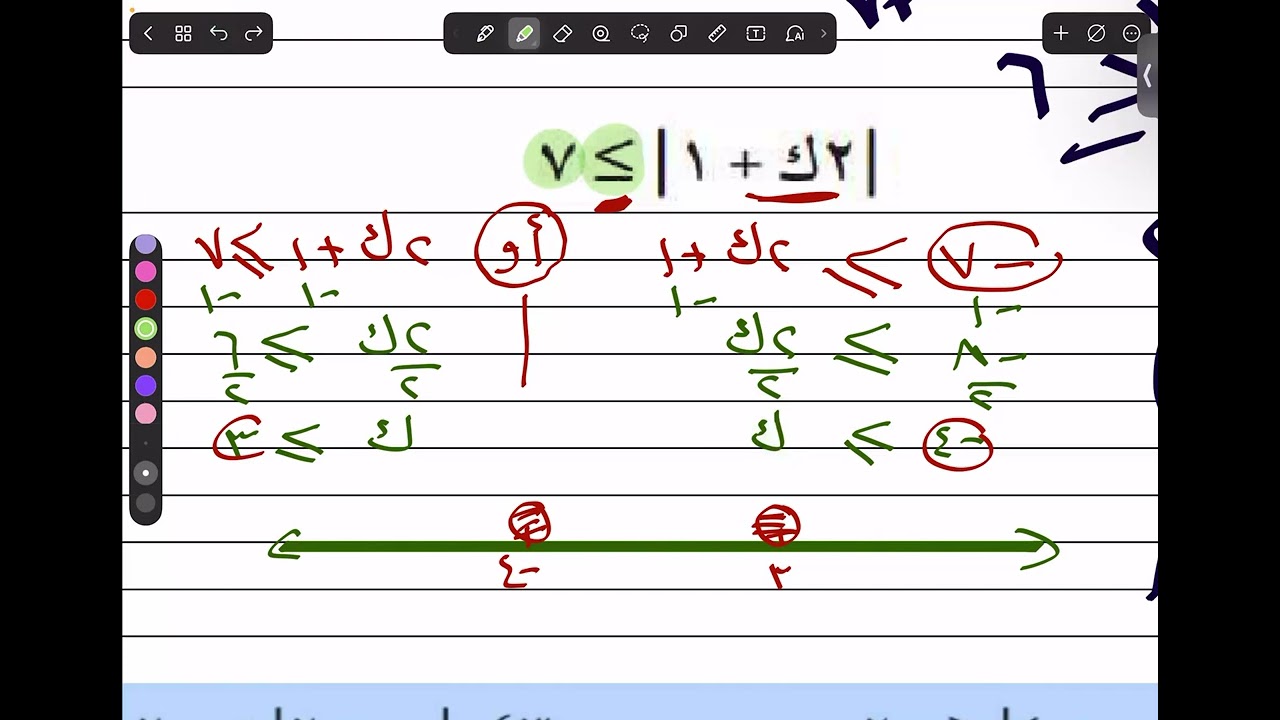 |٢ك + ١| ≥ ٧
-٧ ≥ ٢ك + ١ أو ٢ك + ١ ≥ ٧
-١ -١ -١ -١
-٨ ≥ ٢ك ٢ك ≥ ٦
٢ ٢ ٢ ٢
-٤ ≥ ك ك ≥ ٣
٣ -٤